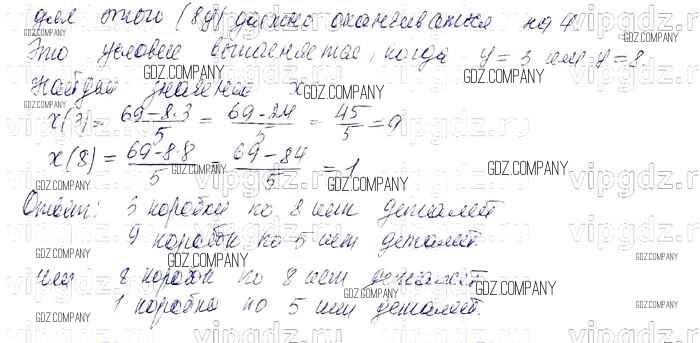 для этого (8y) должно оканчиваться на 4
Это условие выполняется, когда y=3 или y=8
Найдем значения x
x(3) = (69-8·3)/5 = (69-24)/5 = 45/5 = 9
x(8) = (69-8·8)/5 = (69-84)/5 = 1
Ответ: 3 коробки по 8 шт деталей
9 коробок по 5 шт деталей.
или 8 коробок по 8 шт деталей
1 коробка по 5 шт деталей.
GDZ.COMPANY
vipgdz.ru